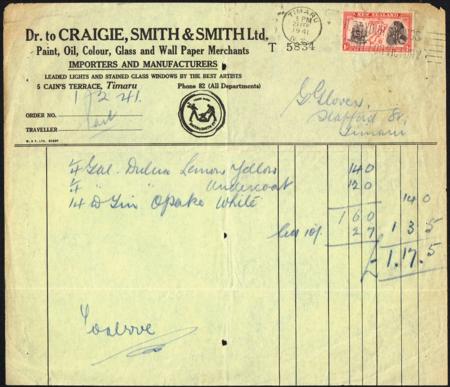 Dr. to CRAIGIE, SMITH & SMITH Ltd,
Paint, Oil, Colour, Glass and Wall Paper Merchants
IMPORTERS AND MANUFACTURERS
LEADED LIGHTS AND STAINED GLASS WINDOWS BY THE BEST ARTISTS
5 CAIN'S TERRACE, Timaru Phone 82 (All Departments)
T 5834
TIMARU
1941
NEW ZEALAND
1/2 41.
ORDER NO.
TRAVELLER
G Glover
Stafford St.
Timaru
1/4 Gal. Dulux Lemon Yellow 14 0
1/4 " " Undercoat 12 0
14 0
14 D Tin Opake White
1 6 0
less 10% 2 7 1 3 5
£ 1. 17. 5